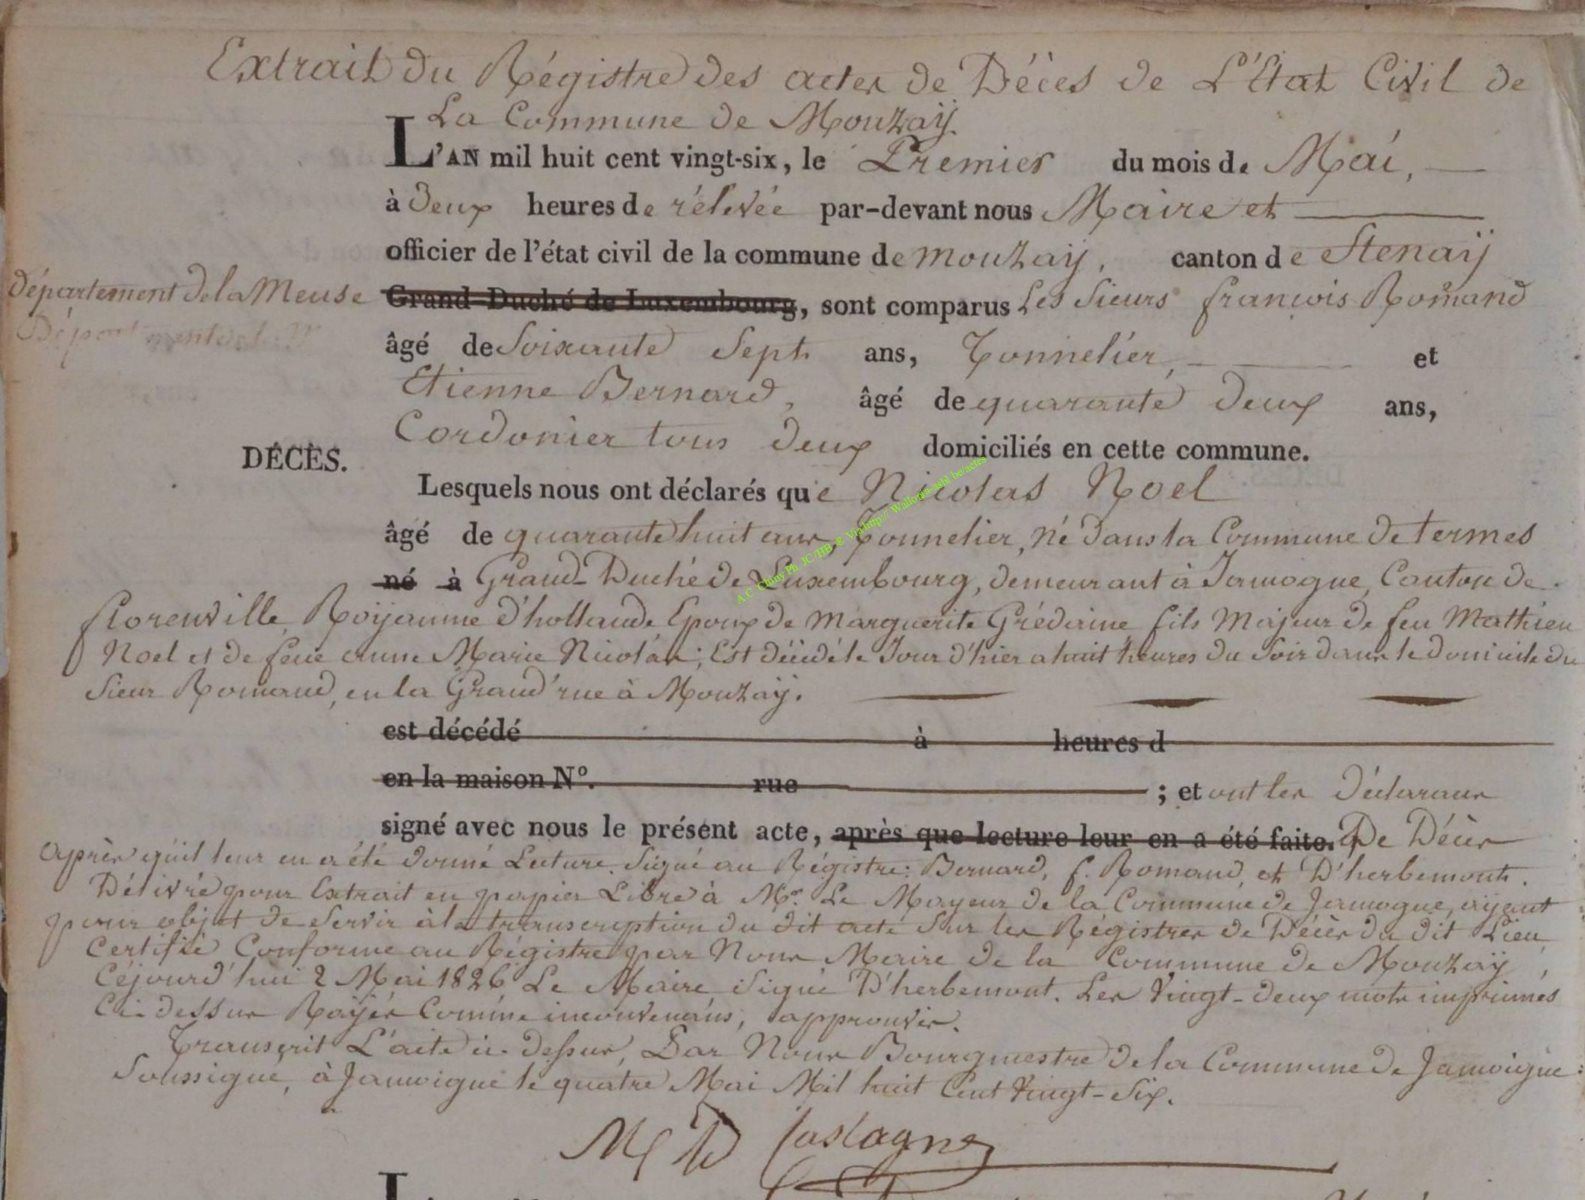 Extrait du Régistre des actes de Décès de L'État Civil de
La Commune de Mouzaÿ.
L'AN mil huit cent vingt-six, le Premier du mois de Mai,
à deux heures de rélevée par-devant nous Maire et
officier de l'état civil de la commune de mouzaÿ, canton de Stenaÿ
département de la Meuse Grand-Duché de Luxembourg, sont comparus Les Sieurs francois Romand
âgé de Soixante Sept ans, Tonnelier, et
Etienne Bernard, âgé de quarante deux ans,
Cordonier tous deux domiciliés en cette commune.
DÉCÈS.
Lesquels nous ont déclarés que Nicolas Noel
âgé de quarante huit ans, Tonnelier, né dans la Commune de termes
né à Grand-Duché de Luxembourg, demeurant à Jamogne, Canton de
florenville, Roÿaume d'hollande Epoux de Marguerite Grédaine fils Majeur de feu Mathieu
Noel et de feue anne Marie Nicolás; Est décédé le Jour d'hier a huit heures du Soir dans le domicile du
Sieur Romand, en la Grand'rue à Mouzaÿ.
est décédé à heures d
en la maison N°. rue ; et ont les Déclarans
signé avec nous le présent acte, après que lecture leur en a été faite. De Décès
après qu'il leur en a été donné Lecture. Signé au Régistre: Bernard, f. Romand, et D'herbemont.
Délivré pour Extrait en papier Libre à Mr. Le Mayeur de la Commune de Jamogne, ayant
pour objet de Servir à la transcription du dit acte Sur les Régistres de Décès du dit Lieu,
Certifié Conforme au Régistre par Nous Maire de la Commune de Mouzaÿ,
Céjourd'hui 2 Mai 1826 Le Maire Signé D'herbemont. Les Vingt-deux mots imprimés
Ci-dessus Rayés Comme inconvenans, approuvés.
Transcrit L'acte ci-dessus, Par Nous Bourgmestre de la Commune de Jamoigne
Soussigné, à Jamoigne le quatre Mai Mil huit Cent Vingt-Six.
Castagne